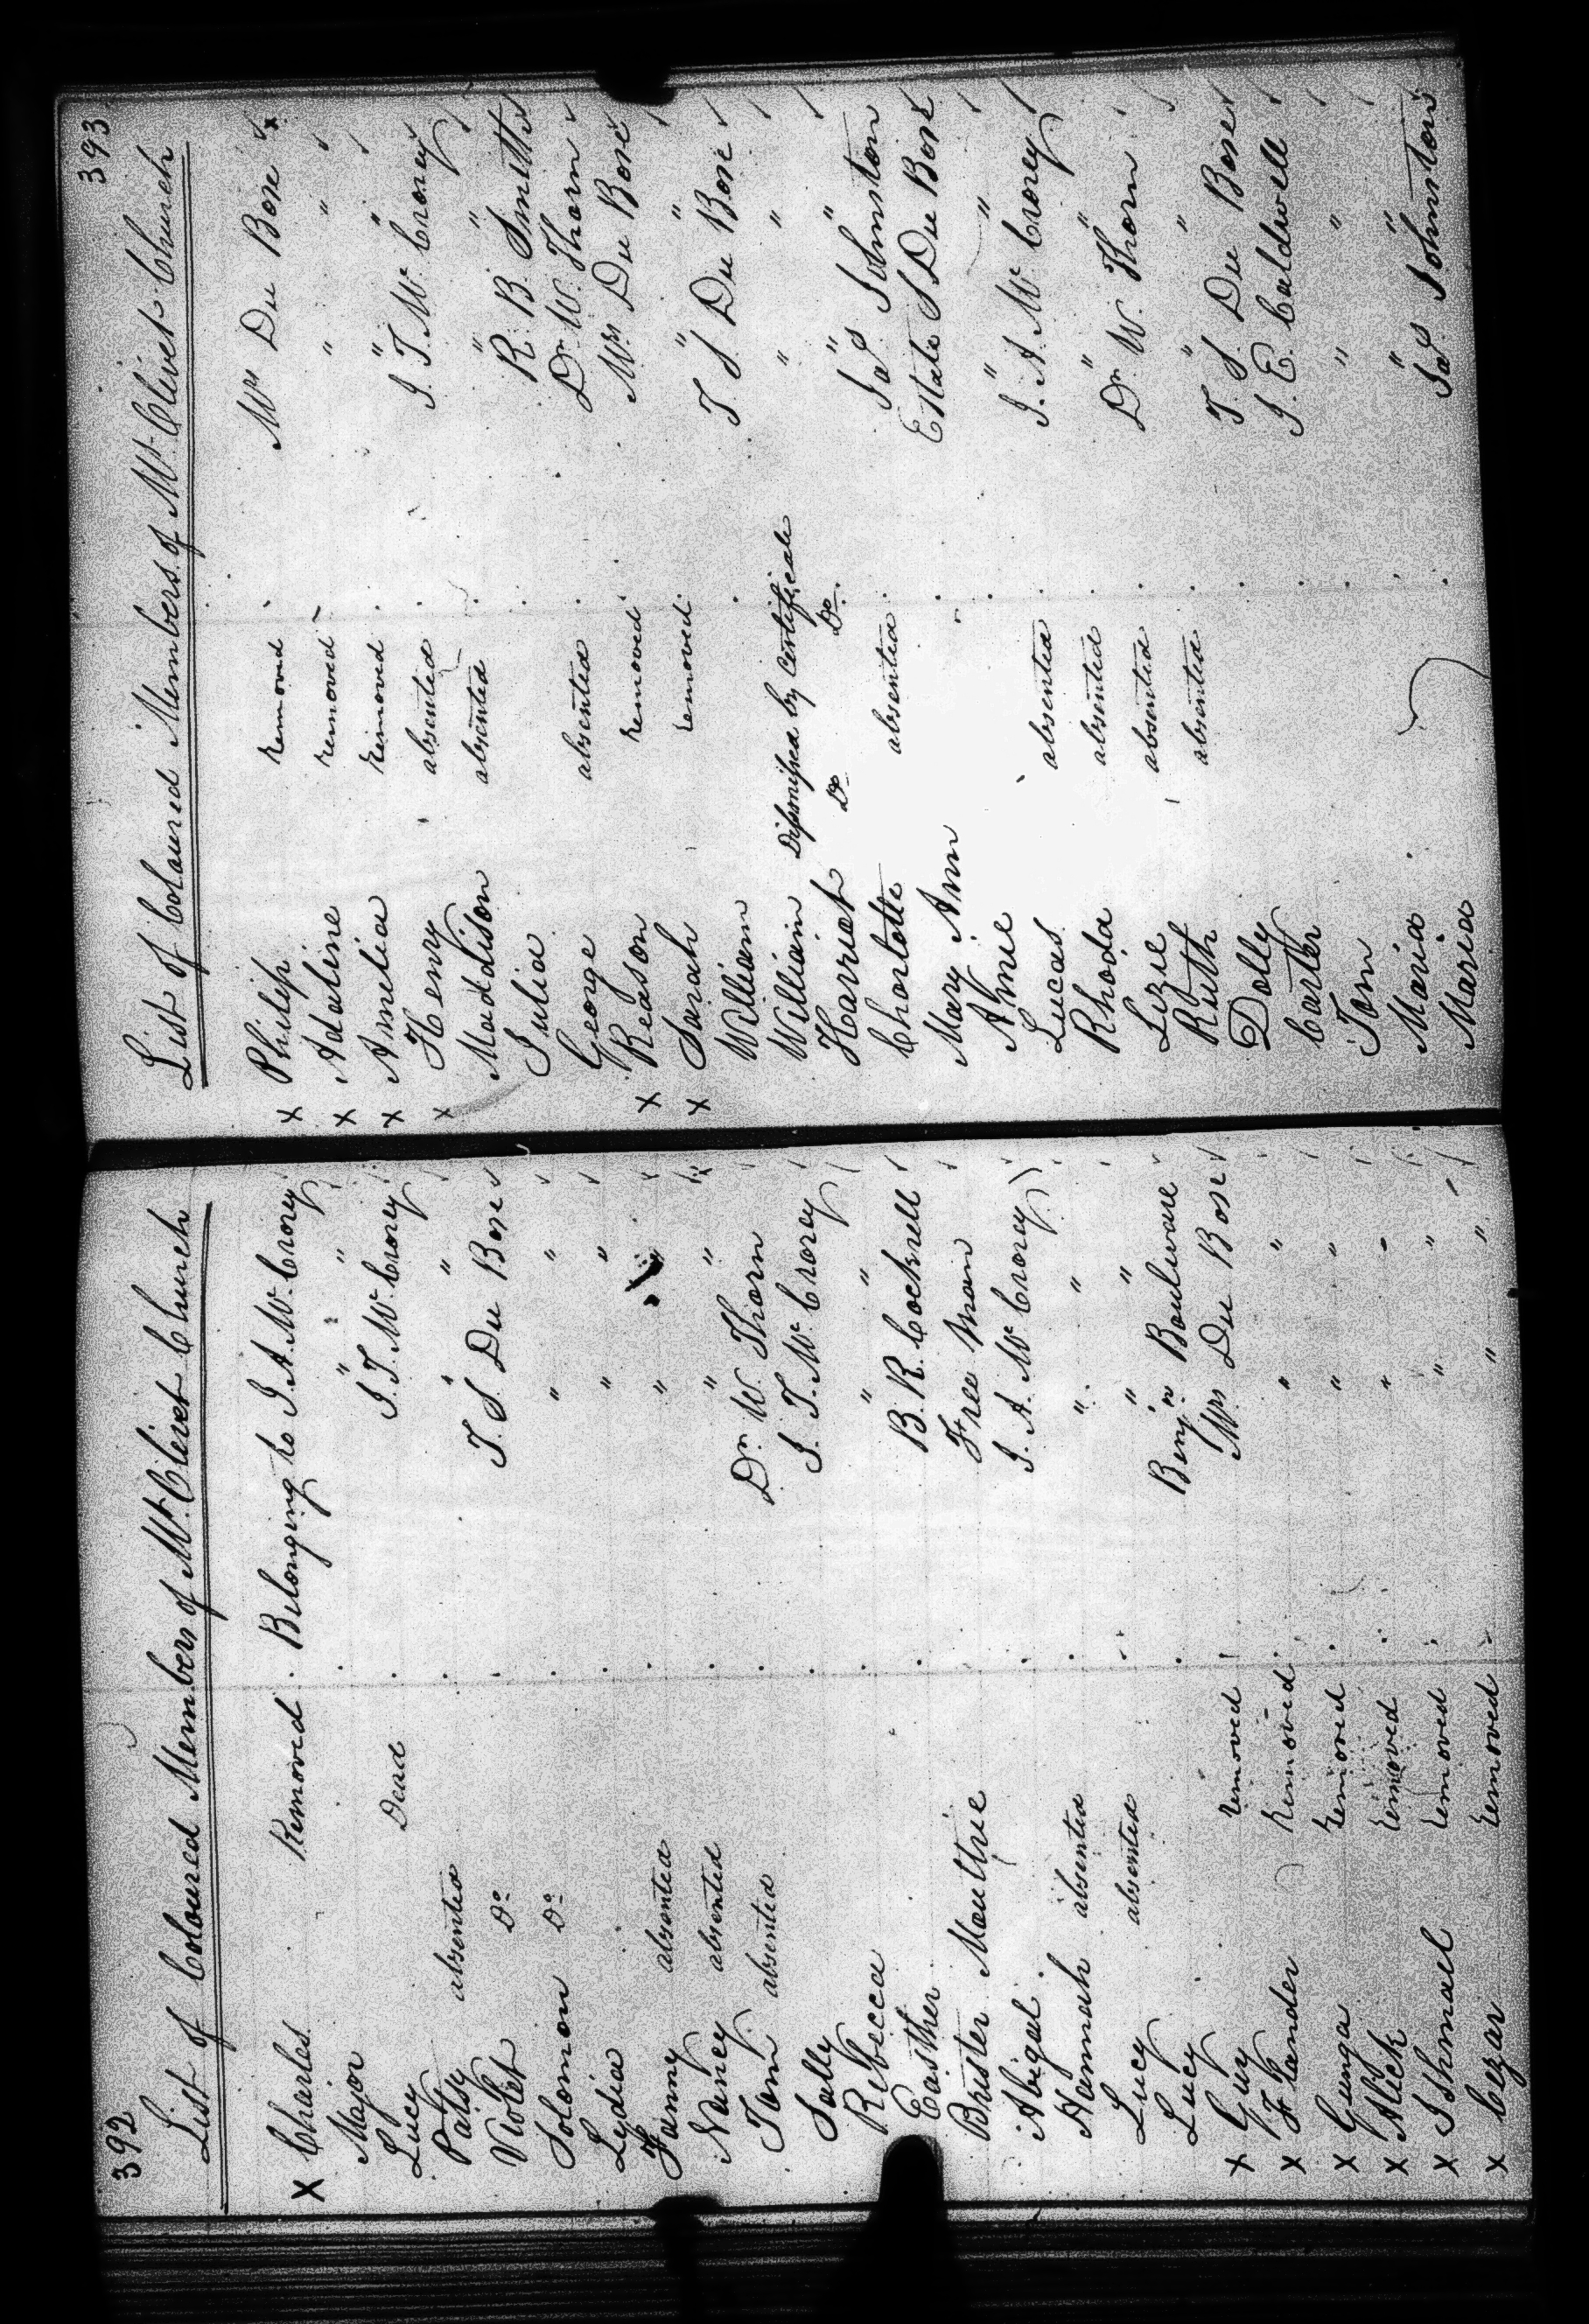 392
List of Coloured Members of Mt. Olivet Church
x Charles Removed Belonging to J. A. McCrorey
Major " "
Lucy Dead J. T. McCrorey
Patsy absented " "
Violet Do T. S. Du Bose
Solomon Do " "
Lydia " "
Fanny absented " "
Nancy absented " "
Tom absented Dr. W. Thorn
Sally J. T. McCrorey
Rebecca " "
Easther B. R. Cockrell
Brister Moultrie Free Man
Abigal J. A. McCrorey
Hannah absented " "
Lucy absented " "
Lucy Benjn Boulware
x Guy removed Mrs Du Bose
x Flander removed " "
x Gunga removed " "
x Alick removed " "
x Ishmall removed " "
x Cezar removed " "
393
List of Coloured Members of Mt. Olivet Church
x Philip removed Mrs Du Bose x
x Adaline removed " "
x Amelia removed " "
x Henry absented J. T. McCrorey
Maddison absented " "
Julia R. B. Smith
George absented Dr. W. Thorn
x Reason removed Mrs Du Bose
x Sarah removed " "
William T S Du Bose
William Dismissed by Certificate " "
Harriet Do Do " "
Charlotte absented Jas Johnston
Mary Ann Estate S Du Bose
Amie " "
Lucas absented J. A. McCrorey
Rhoda absented " "
Lizie absented Dr. W. Thorn
Ruth absented " "
Dolly T. S. Du Bose
Carter J. E. Caldwell
Tom " "
Maria " "
Maria Jas Johnston